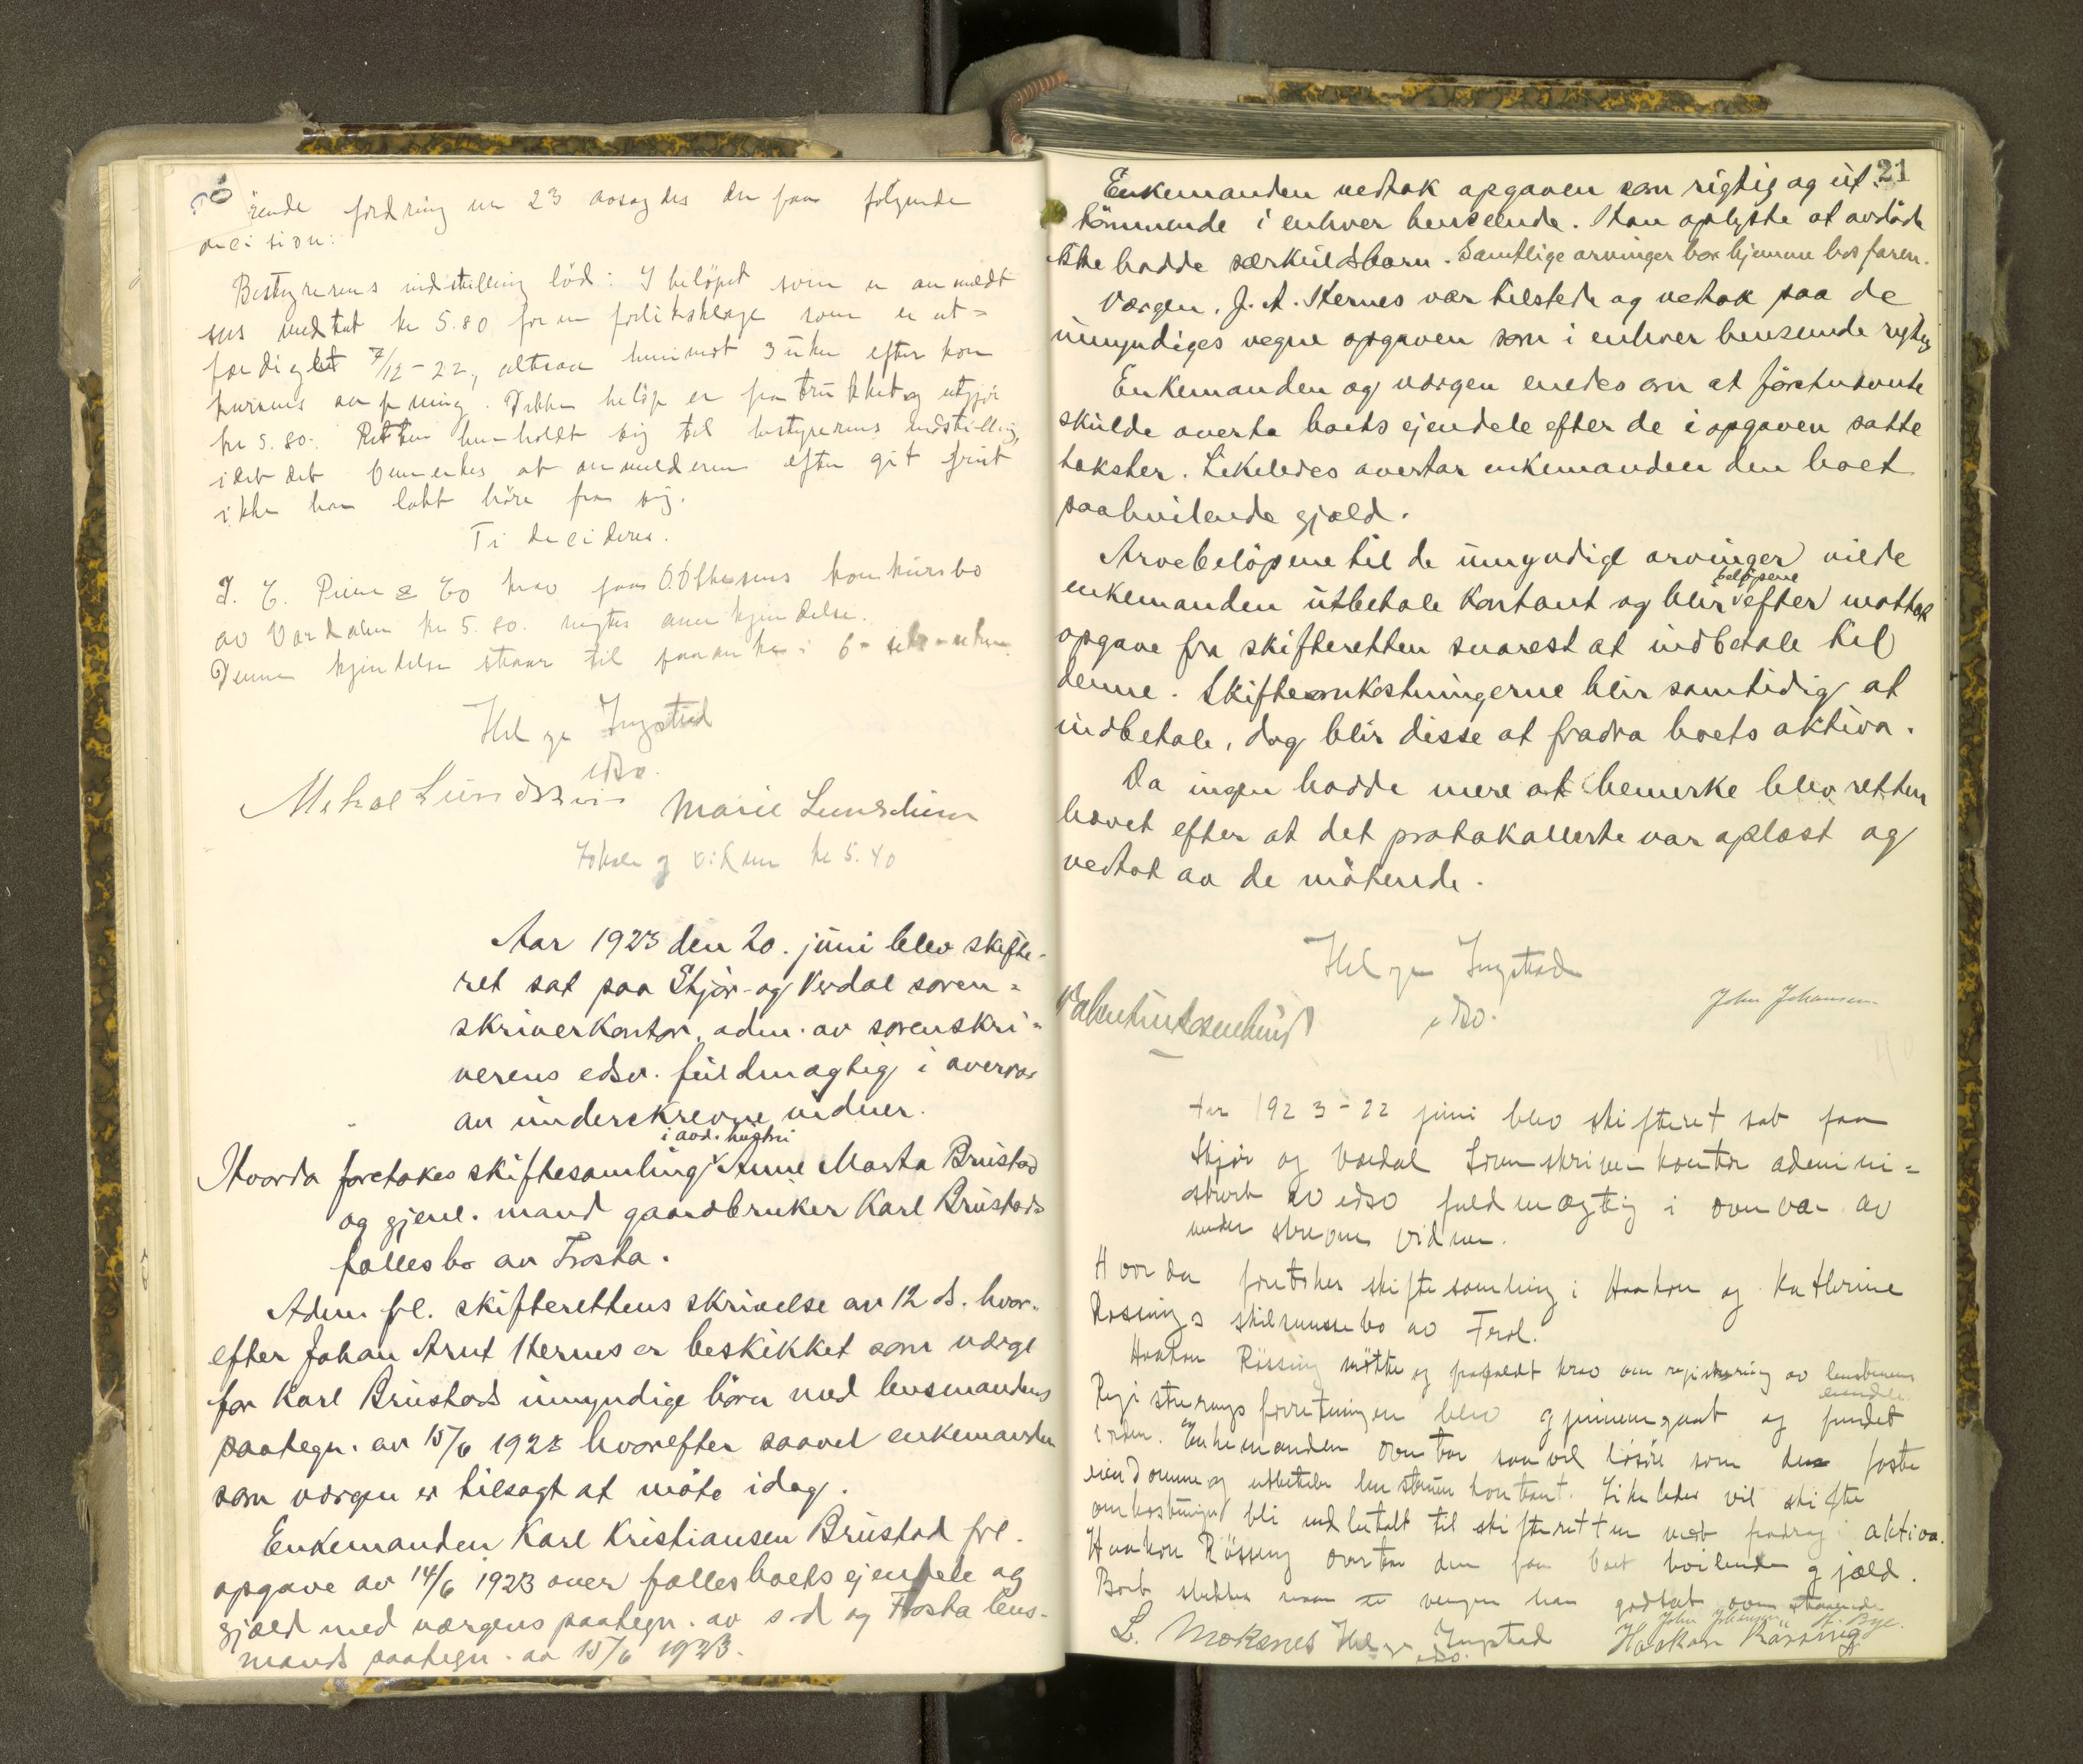 rende fordring nr 23 avsagdes der paa følgende
decision:
Bestyrerens indstilling löd: I belöpet som er anmeldt
sees medtat kr 5.80 for en forliksklage som er ut=
færdiget 7/12-22, altsaa henimot 3 uker efter kon
kursens aapning. Dette beløp er fratrukket og utgjör
kr 5.80. Retten henholdt sig til bestyrerens indstilling,
idet det bemerkes at anmelderen efter git frist
ikke har latt höre fra sig.
Ti decideres.
I. C. Piene & Co krav paa O. Olsens konkursbo
av Værdalen kr 5.80. negtes anerkjendelse.
Denne kjendelse staar til paaanke i 6 - seks - uker.
Helge Ingstad
edsv.
Mikal Lundsheim Marie Lundsheim
Lokale og vidner kr 5.40
Aar 1923 den 20. juni blev skifte-
ret sat paa Stjør- og Verdal soren=
skriverkontor, adm. av sorenskri=
verens edsv. fuldmægtig i overvær
av underskrevne vidner.
i avd. hustru
Hvorda foretokes skiftesamling Anne Marta Brustad
og gjenl. mand gaardbruker Karl Brustads
fællesbo av Frosta.
Adm. frl. skifterettens skrivelse av 12 ds. hvor-
efter Johan Arnt Hernes er beskikket som værge
for Karl Brustads umyndige börn med lensmandens
paategn. av 15/6 1923 hvorefter saavel enkemanden
som værgen er tilsagt at möte idag.
Enkemanden Karl Kristiansen Brustad frl.
opgave av 14/6 1923 over fællesboets ejendele og
gjæld med værgens paategn. av s.d og Frosta lens-
mands paategn. av 15/6 1923.
21
Enkemanden vedtok opgaven som rigtig og ut-
tömmende i enhver henseende. Han oplyste at avdöde
ikke hadde særkuldsbarn. Samtlige arvinger bor hjemme hos faren.
Værgen, J. A. Hernes var tilstede og vetok paa de
umyndiges vegne opgaven som i enhver henseende rigtig
Enkemanden og værgen enedes om at förstnævnte
skulde overta boets ejendele efter de i opgaven satte
takster. Likeledes overtar enkemanden den boet
paahvilende gjæld.
Arvebelöpene til de umyndige arvinger vilde
belöpene
enkemanden utbetale kontant og blir efter mottat
opgave fra skifteretten snarest at indbetale til
denne. Skifteomkostningerne blir samtidig at
indbetale, dog blir disse at fradra boets aktiva.
Da ingen hadde mere at bemerke blev retten
hævet efter at det protokollerte var oplæst og
vedtat av de mötende.
Helge Ingstad
edsv.
John Johansen
Valentin Rosenlund
Aar 1923 - 22 juni blev skifteret sat paa
Stjør og Værdal Sorenskriverkontor admini=
strert av edsv fuldmægtig i overvær av
underskrevne vidner.
Hvorda foretokes skiftesamling i Haakon og Kathrine
Røssings skilsmissebo av Frol.
Haakon Røssing mötte og frafaldt krav om registrering av lensboenes
eiendele.
Registreringsforretningen blev gjennemgaat og fundet
i orden. Enkemanden overtar saavel lösöre som den faste
eiendomme og utbetaler hustruen kontant. Likeledes vil skifte
omkostninger bli indbetalt til skifteretten mot fradrag i aktiva.
Haakon Røssing overtar den paa boet hvilende gjæld.
L. Moksnes Helge Ingstad
edsv.
John Johansen H. Bye.
Haakon Rässing